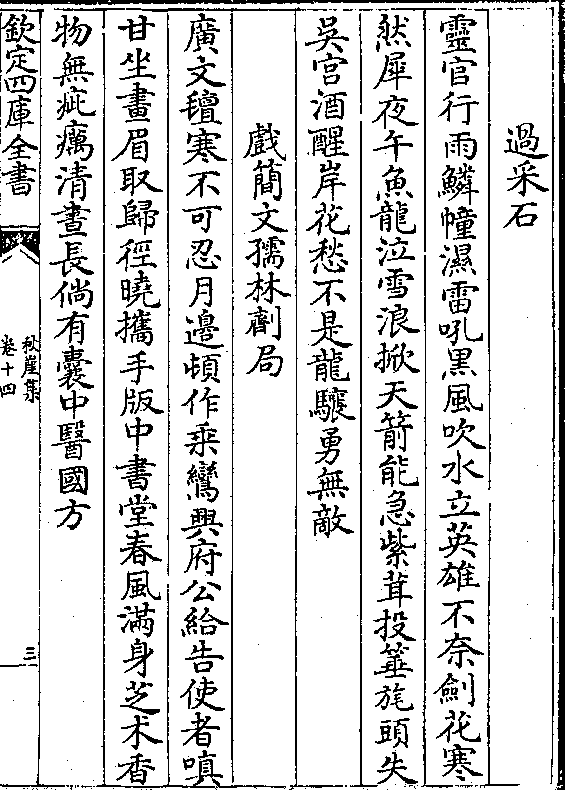 過采石
靈官行雨鱗幢濕雷吼黑風吹水立英雄不奈劍花寒
然犀夜午魚龍泣雪浪掀天箭能急紫茸投箠旄頭失
吳宫酒醒岸花愁不是龍驤勇無敵
戲簡文孺林劑局
廣文氊寒不可忍月邉頓作乘鸞興府公給告使者嗔
甘坐畫眉取歸徑曉攜手版中書堂春風滿身芝术香
物無疵癘清晝長倘有囊中醫國方
欽定四庫全書
秋崖集
卷十四
三